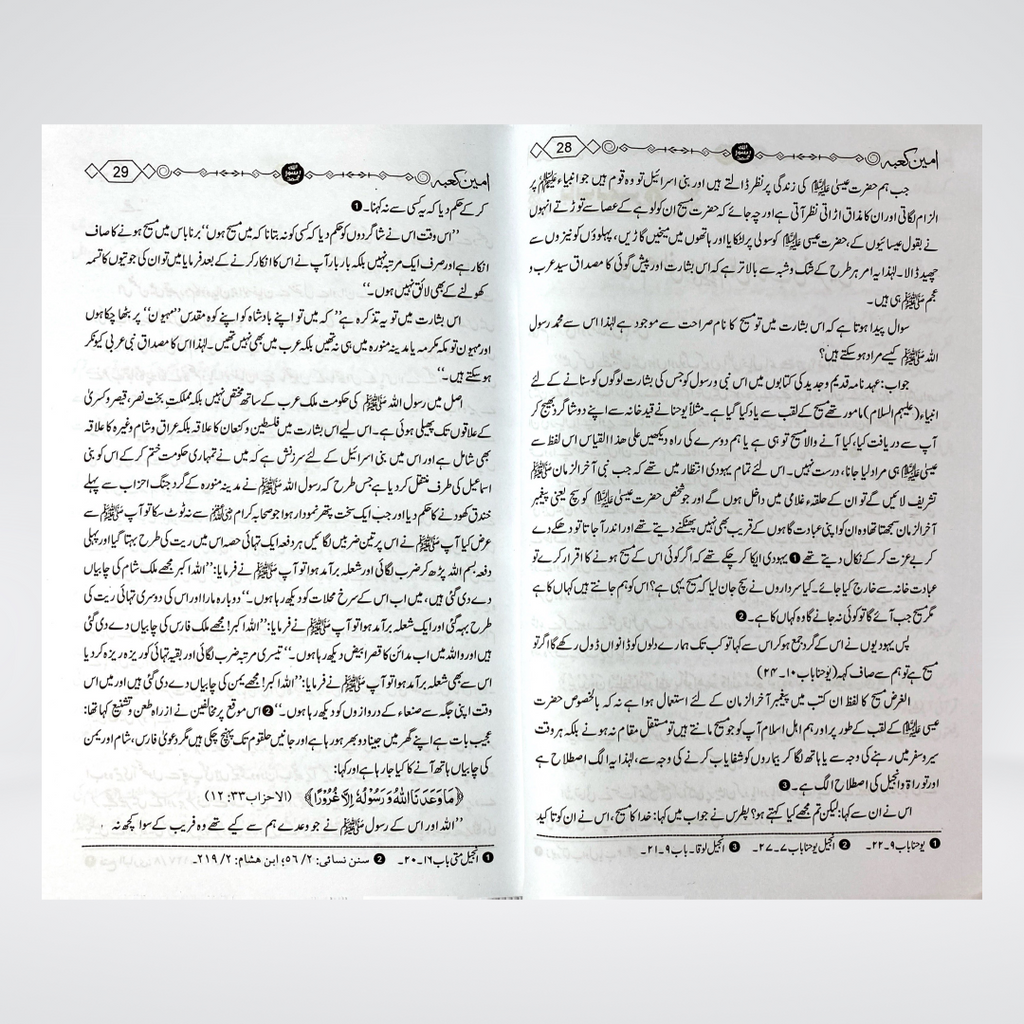 امین کعبہ
28
جب ہم حضرت عیسیٰ علیہ السلام کی زندگی پر نظر ڈالتے ہیں اور بنی اسرائیل تو وہ قوم ہیں جو انبیاء علیہم السلام پر
الزام لگاتی اور ان کا مذاق اڑاتی نظر آتی ہے اور چہ جائے کہ حضرت مسیح ان کو لوہے کے عصا سے توڑتے انہوں
نے بقول عیسائیوں کے، حضرت عیسیٰ علیہ السلام کو سولی پر لٹکایا اور ہاتھوں میں میخیں گاڑیں، پہلوؤں کو نیزوں سے
چھید ڈالا۔ لہٰذا یہ امر ہر طرح کے شک و شبہ سے بالاتر ہے کہ اس بشارت اور پیش گوئی کا مصداق سید عرب و
عجم ﷺ ہی ہیں۔
سوال پیدا ہوتا ہے کہ اس بشارت میں تو مسیح کا نام صراحت سے موجود ہے لہٰذا اس سے محمد رسول
اللہ ﷺ کیسے مراد ہو سکتے ہیں؟
جواب: عہد نامہ قدیم و جدید کی کتابوں میں اس نبی و رسول کو جس کی بشارت لوگوں کو سنانے کے لئے
انبیاء (علیہم السلام) مامور تھے مسیح کے لقب سے یاد کیا گیا ہے۔ مثلاً یوحنا نے قید خانہ سے اپنے دو شاگرد بھیج کر
آپ سے دریافت کیا، کیا آنے والا مسیح تو ہی ہے یا ہم دوسرے کی راہ دیکھیں علی ھذا القیاس اس لفظ سے
عیسیٰ علیہ السلام ہی مراد لیا جانا، درست نہیں۔ اس لئے تمام یہودی انتظار میں تھے کہ جب نبی آخر الزمان ﷺ
تشریف لائیں گے تو ان کے حلقہء غلامی میں داخل ہوں گے اور جو شخص حضرت عیسیٰ علیہ السلام کو مسیح یعنی پیغمبر
آخر الزمان سمجھتا تھا وہ ان کو اپنی عبادت گاہوں کے قریب بھی نہیں پھٹکنے دیتے تھے اور اندر آ جاتا تو دھکے دے
کر بے عزت کر کے نکال دیتے تھے ❶ یہودی ایکا کر چکے تھے کہ اگر کوئی اس کے مسیح ہونے کا اقرار کرے تو
عبادت خانہ سے خارج کیا جائے۔ کیا سرداروں نے سچ جان لیا کہ مسیح یہی ہے؟ اس کو ہم جانتے ہیں کہاں کا ہے
مگر مسیح جب آئے گا تو کوئی نہ جانے گا وہ کہاں کا ہے۔ ❷
پس یہودیوں نے اس کے گرد جمع ہو کر اس سے کہا تو کب تک ہمارے دلوں کو ڈانواں ڈول رکھے گا اگر تو
مسیح ہے تو ہم سے صاف کہہ (یوحنا باب ۱۰۔ ۲۴)
الغرض مسیح کا لفظ ان کتب میں پیغمبر آخر الزمان کے لئے استعمال ہوا ہے نہ کہ بالخصوص حضرت
عیسیٰ علیہ السلام کے لقب کے طور پر اور ہم اہل اسلام آپ کو جو مسیح مانتے ہیں تو مستقل مقام نہ ہونے بلکہ ہر وقت
سیر و سفر میں رہنے کی وجہ سے یا ہاتھ لگا کر بیماروں کو شفایاب کرنے کی وجہ سے، لہٰذا یہ الگ اصطلاح ہے
اور توراۃ و انجیل کی اصطلاح الگ ہے۔ ❸
اس نے ان سے کہا: لیکن تم مجھے کیا کہتے ہو؟ پطرس نے جواب میں کہا: خدا کا مسیح، اس نے ان کو تاکید
❶ یوحنا باب ۹۔ ۲۲۔ ❷ انجیل یوحنا باب ۷۔ ۲۷۔ ❸ انجیل لوقا۔ باب ۹۔ ۲۱۔
امین کعبہ
29
کر کے حکم دیا کہ یہ کسی سے نہ کہنا۔ ❶
’’اس وقت اس نے شاگردوں کو حکم دیا کہ کسی کو نہ بتانا کہ میں مسیح ہوں‘‘ برناباس میں مسیح ہونے کا صاف
انکار ہے اور صرف ایک مرتبہ نہیں بلکہ بار بار آپ نے اس کا انکار کرنے کے بعد فرمایا میں تو ان کی جوتیوں کا تسمہ
کھولنے کے بھی لائق نہیں ہوں۔‘‘
اس بشارت میں تو یہ تذکرہ ہے ’’کہ میں تو اپنے بادشاہ کو اپنے کوہ مقدس ’’صہیون‘‘ پر بٹھا چکا ہوں
اور صہیون تو مکہ مکرمہ یا مدینہ منورہ میں ہی نہ تھیں بلکہ عرب میں بھی نہیں تھیں۔ لہٰذا اس کا مصداق نبی عربی کیونکر
ہو سکتے ہیں۔‘‘
اصل میں رسول اللہ ﷺ کی حکومت ملک عرب کے ساتھ مختص نہیں بلکہ مملکتِ بخت نصر، قیصر و کسریٰ
کے علاقوں تک پھیلی ہوئی ہے۔ اس لیے اس بشارت میں فلسطین و کنعان کا علاقہ بلکہ عراق و شام وغیرہ کا علاقہ
بھی شامل ہے اور اس میں بنی اسرائیل کے لئے سرزنش ہے کہ میں نے تمہاری حکومت ختم کر کے اس کو بنی
اسماعیل کی طرف منتقل کر دیا ہے جس طرح کہ رسول اللہ ﷺ نے مدینہ منورہ کے گرد جنگ احزاب سے پہلے
خندق کھودنے کا حکم دیا اور جب ایک سخت پتھر نمودار ہوا جو صحابہ کرام رضی اللہ عنہم سے نہ ٹوٹ سکا تو آپ ﷺ سے
عرض کیا آپ ﷺ نے اس پر تین ضربیں لگائیں ہر دفعہ ایک تہائی حصہ اس میں ریت کی طرح بہتا گیا اور پہلی
دفعہ بسم اللہ پڑھ کر ضرب لگائی اور شعلہ برآمد ہوا تو آپ ﷺ نے فرمایا: ’’اللہ اکبر مجھے ملک شام کی چابیاں
دے دی گئی ہیں، میں اب اس کے سرخ محلات کو دیکھ رہا ہوں۔‘‘ دوبارہ مارا اور اس کی دوسری تہائی ریت کی
طرح بہہ گئی اور ایک شعلہ برآمد ہوا تو آپ ﷺ نے فرمایا: ’’اللہ اکبر! مجھے ملک فارس کی چابیاں دے دی گئی
ہیں اور واللہ میں اب مدائن کا قصر ابیض دیکھ رہا ہوں۔‘‘ تیسری مرتبہ ضرب لگائی اور بقیہ تہائی کو ریزہ ریزہ کر دیا
اس سے بھی شعلہ برآمد ہوا تو آپ ﷺ نے فرمایا: ’’اللہ اکبر! مجھے یمن کی چابیاں دے دی گئی ہیں اور میں اس
وقت اپنی جگہ سے صنعاء کے دروازوں کو دیکھ رہا ہوں۔‘‘ ❷ اس موقع پر مخالفین نے از راہ طعن و تشنیع کہا تھا:
عجیب بات ہے اپنے گھر میں جینا دوبھر ہو رہا ہے اور جانیں حلقوم تک پہنچ چکی ہیں مگر دعویٰ فارس، شام اور یمن
کی چابیاں ہاتھ آنے کا کیا جا رہا ہے اور کہا:
﴿مَا وَعَدَنَا اللّٰہُ وَ رَسُوْلُہٗ اِلَّا غُرُوْرًا﴾ (الاحزاب ۳۳:۱۲)
’’اللہ اور اس کے رسول ﷺ نے جو وعدے ہم سے کیے تھے وہ فریب کے سوا کچھ نہ
❶ انجیل متی باب ۱۶۔ ۲۰۔ ❷ سنن نسائی: ۲/ ۵۶؛ ابن ھشام: ۲/ ۲۱۹۔